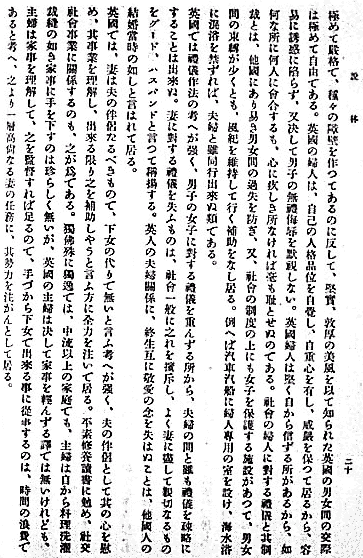 說林
二十
極めて嚴格で、種々の障壁を作つてあるのに反して、堅實、敦厚の美風を以て知られた英國の男女間の交際
は極めて自由である。英國の婦人は、自己の人格品位を自覺し、自重心を有し、威嚴を保つて居るから、容
易に誘惑に陷らず、又決して男子の無禮侮辱を默視しない。英國婦人は堅く自から信ずる所があるから、如
何な所に何人に會合するも、心に疚しき所なければ毫も耻とせぬのである。社會の婦人に對する禮儀と其制
裁とは、他國にあり易き男女間の過失を防ぎ、又、社會の制度の上にも女子を保護する施設があつて、男女
間の束縛が少くとも、風紀を維持して行く補助をなし居る。例へば汽車汽船に婦人專用の室を設け、海水浴
に混浴を禁ずれば、夫婦と雖同行出來ぬ類である。
英國では禮儀作法の考へが强く、男子の女子に對する禮儀を重んずる所から、夫婦の間と雖も禮儀を疎略に
することは出來ぬ。妻に對する禮儀を失ふものは、社會一般に之れを擯斥し、よく妻に盡して親切なるもの
をグード、ハスバンドと言つて稱揚する。英人の夫婦關係に、終生互に敬愛の念を失はぬことは、他國人の
結婚當時の如しと言はれて居る。
英國では、妻は夫の伴侶なるべきもので、下女の代りで無いと言ふ考へが强く、夫の伴侶として其の心を慰
め、其事業を理解し、出來る限り之を補助しやうと言ふ方に全力を注いで居る。不素修養讀書に勉め、社交
社會事業に關係するのも、之が爲である。獨佛殊に獨逸では、中流以上の家庭でも、主婦は自から料理洗濯
裁縫の如き家事に手を下すのは珍らしく無いが、英國の主婦は決して家事を輕んずる譯では無いけれども、
主婦は家事を理解して、之を監督すれば足るので、手づから下女で出來る事に從事するのは、時間の浪費で
あると考へ、之より一層高尙なる妻の任務に、其勢力を注がんとして居る。